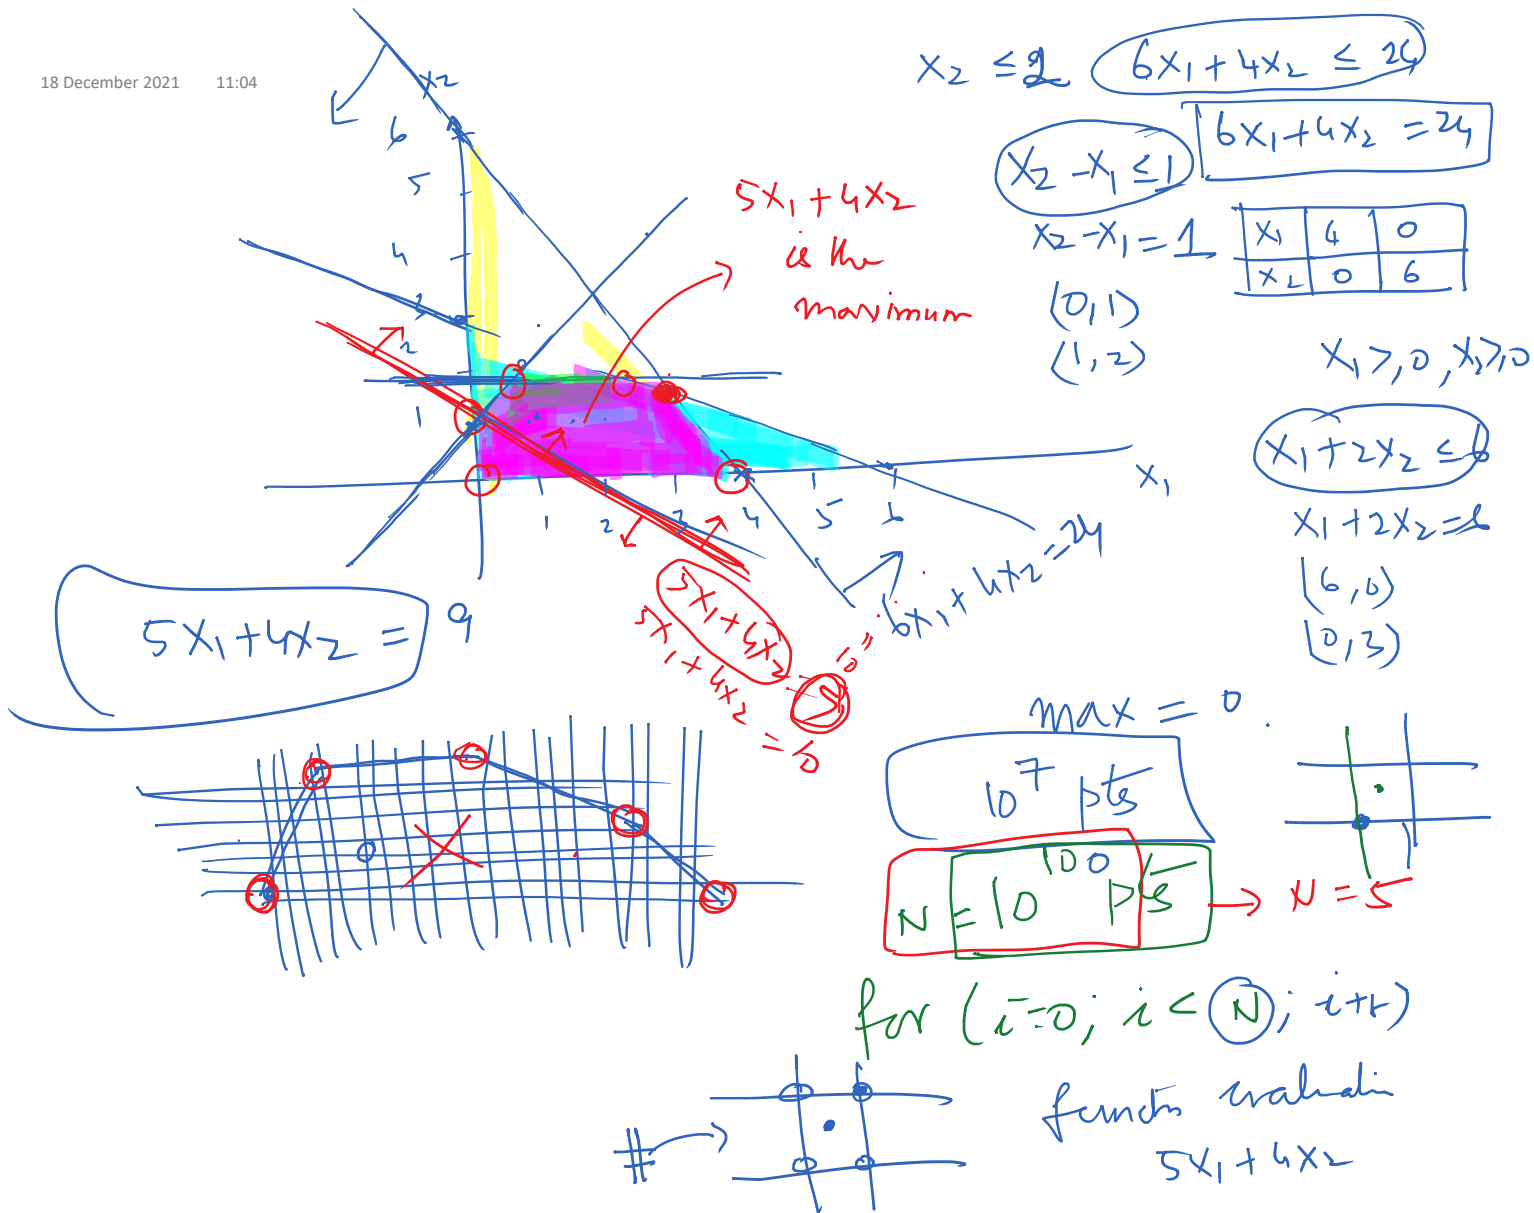 18 December 2021 11:04
x2
6
5
4
3
2
1
1 2 3 4 5 6
x1
5x1+4x2
is the
maximum
x2 ≤ 2
6x1+4x2 ≤ 24
6x1+4x2 = 24
x2 - x1 ≤ 1
x2 - x1 = 1
x1 4 0
x2 0 6
(0,1)
(1,2)
x1 ≥ 0, x2 ≥ 0
x1+2x2 ≤ 6
x1+2x2 = 6
(6,0)
(0,3)
6x1+4x2=24
5x1+4x2 = 9
5x1+4x2
5x1+4x2 = 10
10
max = 0.
10^7 pts
N = 10^100 pts
N = 5
for (i=0; i < N; i++)
function evaluation
5x1+4x2
#